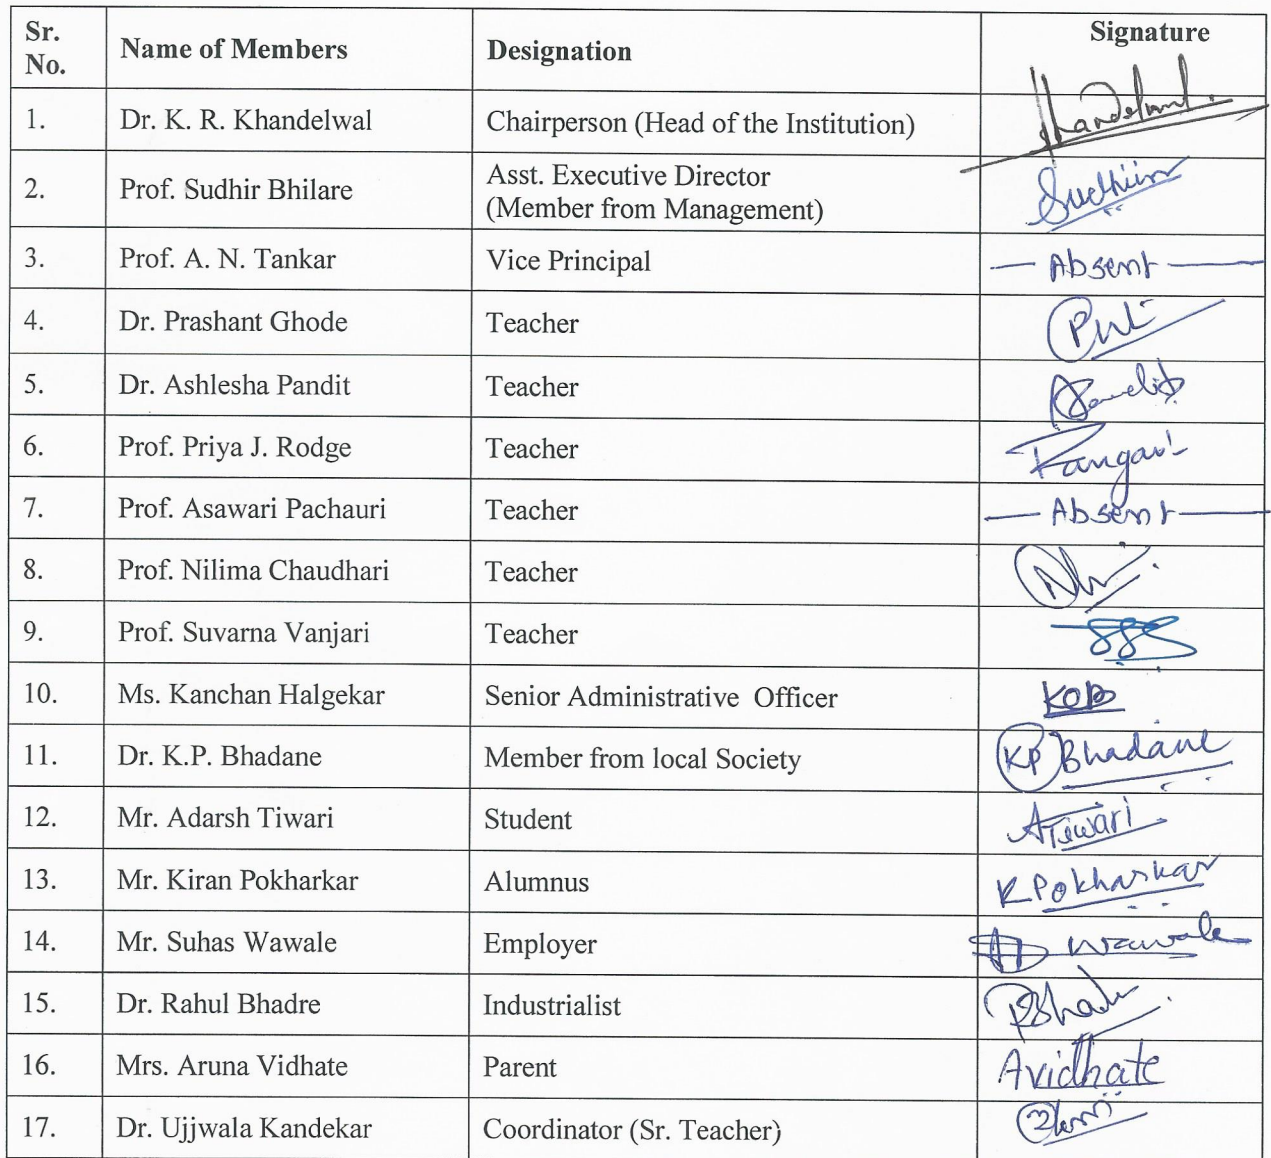 Sr. No. Name of Members Designation Signature
1. Dr. K. R. Khandelwal Chairperson (Head of the Institution) Khandelwal
2. Prof. Sudhir Bhilare Asst. Executive Director
(Member from Management) Sudhir
3. Prof. A. N. Tankar Vice Principal — Absent —
4. Dr. Prashant Ghode Teacher
5. Dr. Ashlesha Pandit Teacher
6. Prof. Priya J. Rodge Teacher
7. Prof. Asawari Pachauri Teacher — Absent —
8. Prof. Nilima Chaudhari Teacher
9. Prof. Suvarna Vanjari Teacher
10. Ms. Kanchan Halgekar Senior Administrative Officer
11. Dr. K.P. Bhadane Member from local Society KP Bhadane
12. Mr. Adarsh Tiwari Student ATiwari
13. Mr. Kiran Pokharkar Alumnus K Pokharkar
14. Mr. Suhas Wawale Employer Wawale
15. Dr. Rahul Bhadre Industrialist
16. Mrs. Aruna Vidhate Parent Avidhate
17. Dr. Ujjwala Kandekar Coordinator (Sr. Teacher)